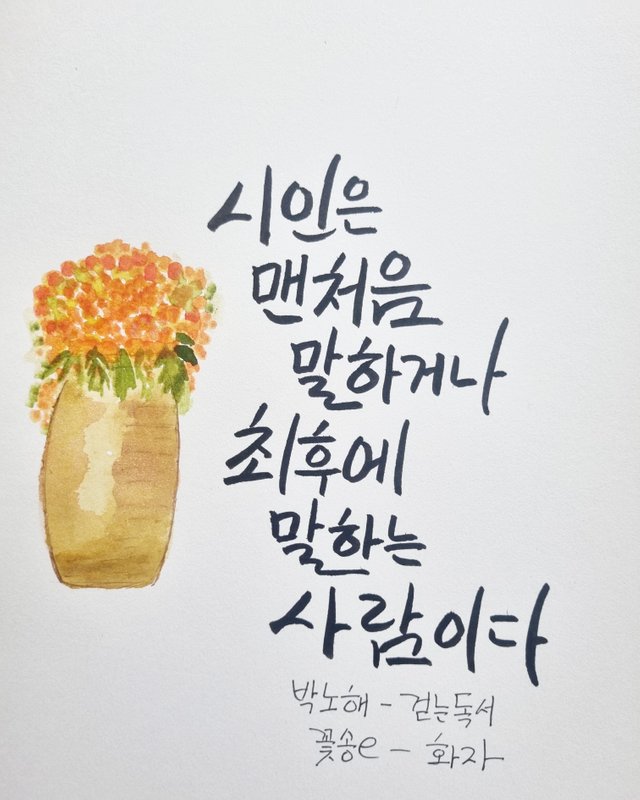 시인은
맨처음
말하거나
최후에
말하는
사람이다
박노해 - 걷는독서
꽃송e - 화자